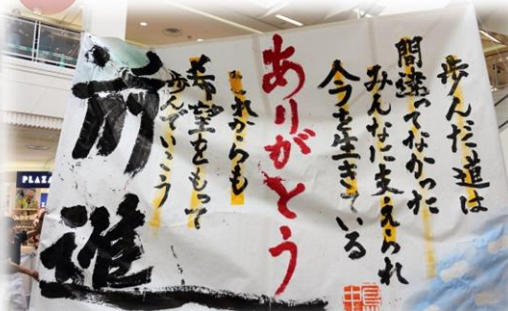 歩んだ道は
間違ってなかった
みんなに支えられ
今を生きている
ありがとう
これからも
希望をもって
歩んでいこう
前進
PLAZA